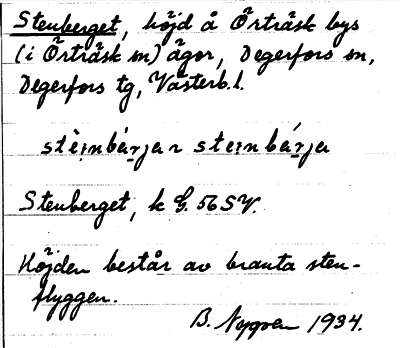 Stenberget, höjd å Örträsk bys
(i Örträsk sn) ägor, Degerfors sn,
Degerfors tg, Västerb. l.
stèi̯nbárjar stei̯nbárja
Stenberget, k G. 56 SV.
Höjden består av branta sten-
flyggen.
B. Nygren 1934.